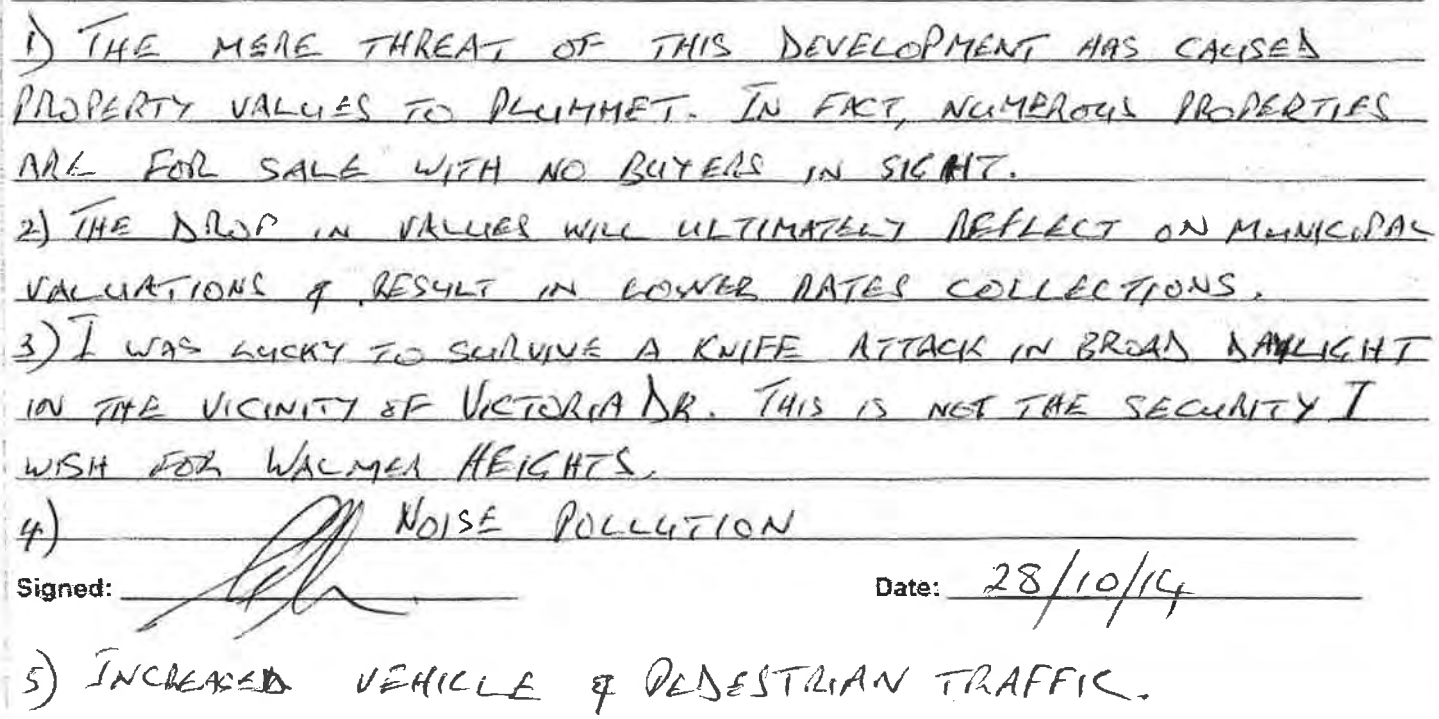 1) THE MERE THREAT OF THIS DEVELOPMENT HAS CAUSED
PROPERTY VALUES TO PLUMMET. IN FACT, NUMEROUS PROPERTIES
ARE FOR SALE WITH NO BUYERS IN SIGHT.
2) THE DROP IN VALUES WILL ULTIMATELY REFLECT ON MUNICIPAL
VALUATIONS & RESULT IN LOWER RATES COLLECTIONS.
3) I WAS LUCKY TO SURVIVE A KNIFE ATTACK IN BROAD DAYLIGHT
IN THE VICINITY OF VICTORIA DR. THIS IS NOT THE SECURITY I
WISH FOR WALMER HEIGHTS.
4) NOISE POLLUTION
Signed: Date: 28/10/14
5) INCREASED VEHICLE & PEDESTRIAN TRAFFIC.